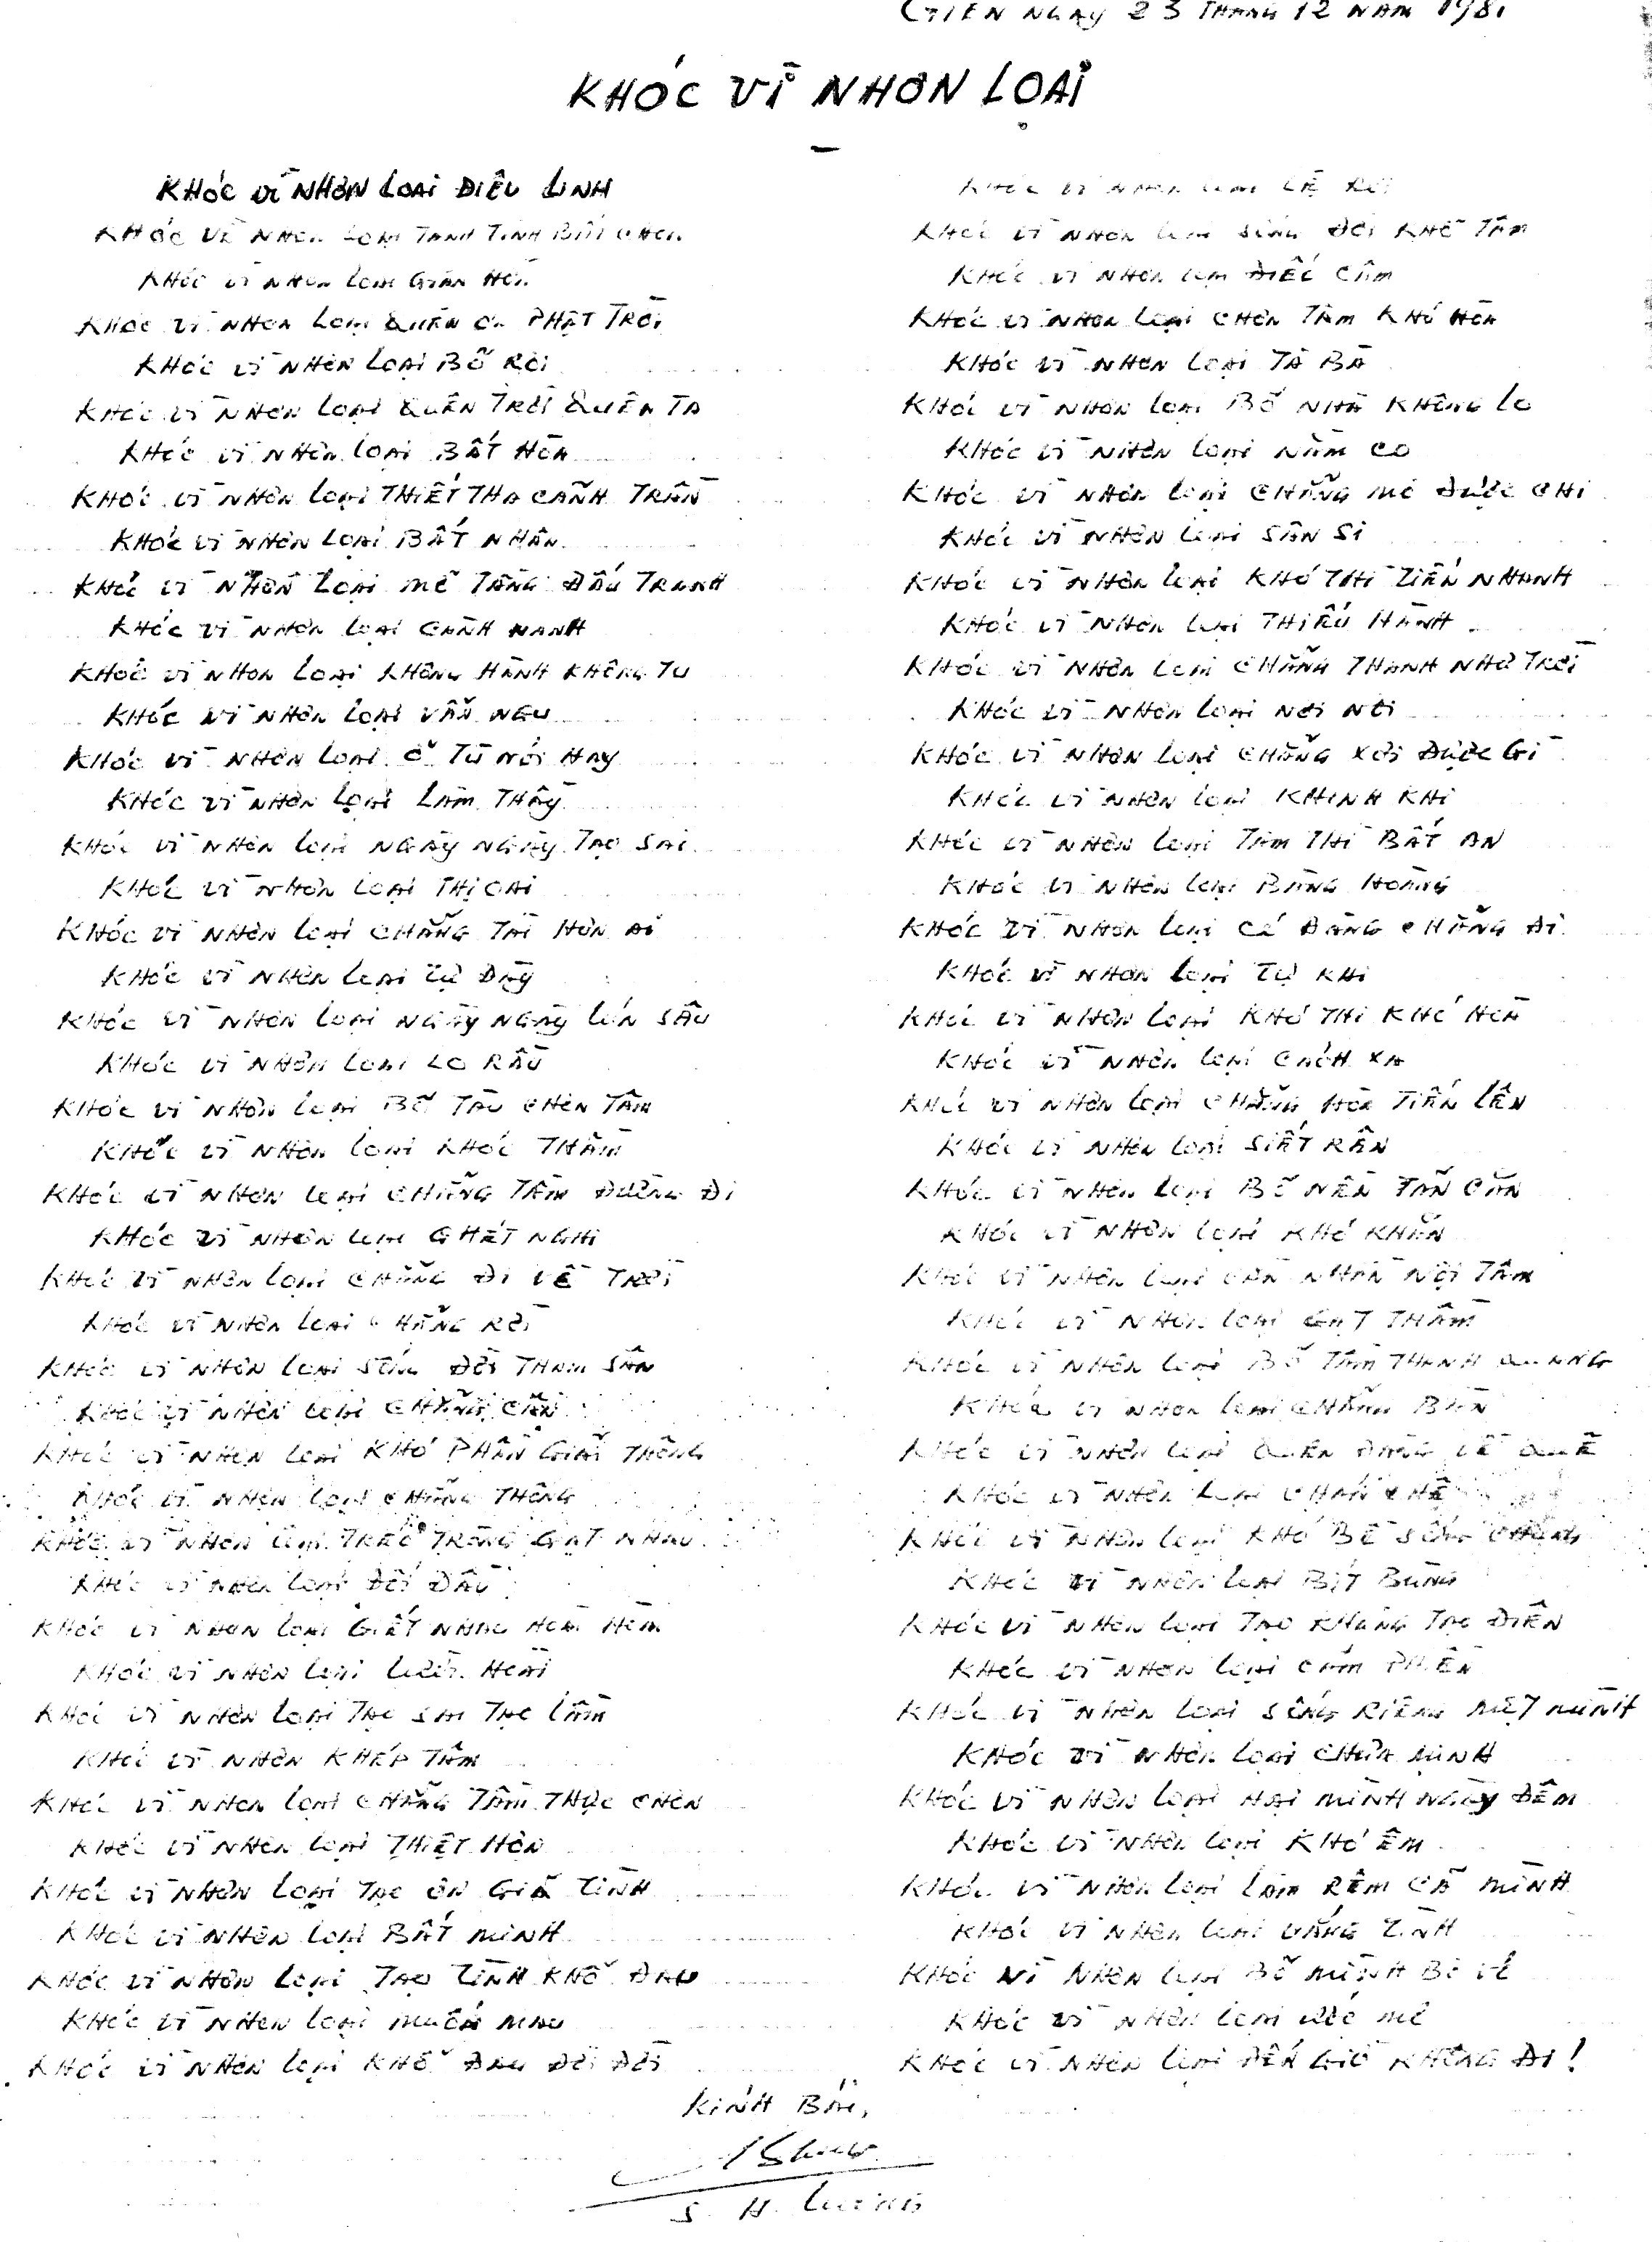 NGÀY 23 THÁNG 12 NĂM
KHÓC VÌ NHƠN LOẠI
KHÓC VÌ NHƠN LOẠI ĐIÊU LINH
KHÓC VÌ NHƠN LOẠI TANH TÌNH BẤT
KHÓC VÌ NHƠN LOẠI GIÁN
KHÓC VÌ NHƠN LOẠI QUÊN ƠN PHẬT TRỜI
KHÓC VÌ NHƠN LOẠI BỐ RỐI
KHÓC VÌ NHƠN LOẠI QUÊN TRỜI QUÊN TA
KHÓC VÌ NHƠN LOẠI BẤT HÒA
KHÓC VÌ NHƠN LOẠI THIẾT THA CẢNH TRẦN
KHÓC VÌ NHƠN LOẠI BẤT NHÂN
KHÓC VÌ NHƠN LOẠI MÊ TÂNG ĐẤU TRANH
KHÓC VÌ NHƠN LOẠI CÀNH NANH
KHÓC VÌ NHƠN LOẠI KHÔNG HÀNH KHÔNG TU
KHÓC VÌ NHƠN LOẠI VẪN NGU
KHÓC VÌ NHƠN LOẠI Ở TÙ NÓI HAY
KHÓC VÌ NHƠN LOẠI LÀM THẦY
KHÓC VÌ NHƠN LOẠI NGÀY NGÀY TẠO SAI
KHÓC VÌ NHƠN LOẠI THỊ OAI
KHÓC VÌ NHƠN LOẠI CHẲNG TÀI HƠN AI
KHÓC VÌ NHƠN LOẠI TỰ ĐÀY
KHÓC VÌ NHƠN LOẠI NGÀY NGÀY LÚN SÂU
KHÓC VÌ NHƠN LOẠI LO RẦU
KHÓC VÌ NHƠN LOẠI BỎ TÀU CHƠN TÂM
KHÓC VÌ NHƠN LOẠI KHÓC THẦM
KHÓC VÌ NHƠN LOẠI CHẲNG TẦM ĐƯỜNG ĐI
KHÓC VÌ NHƠN LOẠI GHÉT NGHI
KHÓC VÌ NHƠN LOẠI CHẲNG ĐI VỀ TRỜI
KHÓC VÌ NHƠN LOẠI CHẲNG RỜI
KHÓC VÌ NHƠN LOẠI SỐNG ĐỜI THAM SÂN
KHÓC VÌ NHƠN LOẠI CHẲNG CẦN
KHÓC VÌ NHƠN LOẠI KHÓ PHÂN GIẢI THÔNG
KHÓC VÌ NHƠN LOẠI CHẲNG THÔNG
KHÓC VÌ NHƠN LOẠI TRÁO TRỞ GẠT NHAU
KHÓC VÌ NHƠN LOẠI ĐỐI ĐẦU
KHÓC VÌ NHƠN LOẠI GIẾT NHAU HOÀI
KHÓC VÌ NHƠN LOẠI HOÀI
KHÓC VÌ NHƠN LOẠI TẠO SAI TẠO LẦM
KHÓC VÌ NHƠN KHÉP TÂM
KHÓC VÌ NHƠN LOẠI CHẲNG TẦM THỰC CHƠN
KHÓC VÌ NHƠN LOẠI THIỆT HƠN
KHÓC VÌ NHƠN LOẠI TẠO ƠN GIẢ TÌNH
KHÓC VÌ NHƠN LOẠI BẤT MINH
KHÓC VÌ NHƠN LOẠI TẠO TÌNH KHỔ ĐAU
KHÓC VÌ NHƠN LOẠI MUỐN MAU
KHÓC VÌ NHƠN LOẠI KHỔ ĐAU ĐỜI ĐỜI
KHÓC VÌ NHƠN LOẠI LỆ RƠI
KHÓC VÌ NHƠN LOẠI SỐNG ĐỜI KHỔ TÂM
KHÓC VÌ NHƠN LOẠI ĐIẾC CÂM
KHÓC VÌ NHƠN LOẠI CHƠN TÂM KHÓ HÒA
KHÓC VÌ NHƠN LOẠI TÀ BÀ
KHÓC VÌ NHƠN LOẠI BỎ NHÀ KHÔNG LO
KHÓC VÌ NHƠN LOẠI NẰM CO
KHÓC VÌ NHƠN LOẠI CHẲNG MÒ ĐƯỢC CHI
KHÓC VÌ NHƠN LOẠI SÂN SI
KHÓC VÌ NHƠN LOẠI KHÓ THI TIẾN NHANH
KHÓC VÌ NHƠN LOẠI THIẾU HÀNH
KHÓC VÌ NHƠN LOẠI CHẲNG THANH NHƯ TRỜI
KHÓC VÌ NHƠN LOẠI NƠI NƠI
KHÓC VÌ NHƠN LOẠI CHẲNG XƠI ĐƯỢC GÌ
KHÓC VÌ NHƠN LOẠI KHINH KHI
KHÓC VÌ NHƠN LOẠI TÂM THÌ BẤT AN
KHÓC VÌ NHƠN LOẠI BÀNG HOÀNG
KHÓC VÌ NHƠN LOẠI CÓ ĐÀNG CHẲNG ĐI
KHÓC VÌ NHƠN LOẠI TỰ KHI
KHÓC VÌ NHƠN LOẠI KHÓ THI KHÓ HÒA
KHÓC VÌ NHƠN LOẠI CÁCH XA
KHÓC VÌ NHƠN LOẠI CHẲNG HÒA TIẾN LÊN
KHÓC VÌ NHƠN LOẠI SIẾT RÊN
KHÓC VÌ NHƠN LOẠI BỎ NÊN CĂN
KHÓC VÌ NHƠN LOẠI KHÓ KHĂN
KHÓC VÌ NHƠN LOẠI NỘI TÂM
KHÓC VÌ NHƠN LOẠI GẠT THẦM
KHÓC VÌ NHƠN LOẠI BỎ TÂM THANH QUANG
KHÓC VÌ NHƠN LOẠI CHẲNG BÀN
KHÓC VÌ NHƠN LOẠI QUÊN ĐÀNG VỀ QUÊ
KHÓC VÌ NHƠN LOẠI CHÁN CHÊ
KHÓC VÌ NHƠN LOẠI KHÓ BỀ SỐNG CHUNG
KHÓC VÌ NHƠN LOẠI BỊT BÙNG
KHÓC VÌ NHƠN LOẠI TẠO KHÙNG TẠO ĐIÊN
KHÓC VÌ NHƠN LOẠI CẢM PHIỀN
KHÓC VÌ NHƠN LOẠI SỐNG RIÊNG MỘT MÌNH
KHÓC VÌ NHƠN LOẠI CHƯA MINH
KHÓC VÌ NHƠN LOẠI HẠI MÌNH NGÀY ĐÊM
KHÓC VÌ NHƠN LOẠI KHÓ ÊM
KHÓC VÌ NHƠN LOẠI LÀM RÊM CẢ MÌNH
KHÓC VÌ NHƠN LOẠI VẮNG TÌNH
KHÓC VÌ NHƠN LOẠI BỎ MÌNH BƠ VƠ
KHÓC VÌ NHƠN LOẠI ƯỚC MƠ
KHÓC VÌ NHƠN LOẠI ĐẾN GIỜ KHÔNG ĐI!
KÍNH BÁI,
S. H. LƯƠNG